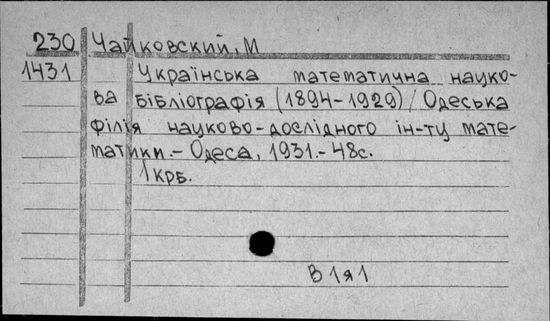 230 Чайковский, М
1431 Українська математична науко-
ва бібліографія (1894-1929) / Одеська
філія науково-дослідного ін-ту мате-
матики.- Одеса, 1931.- 48с.
1 крб.
В 1я1